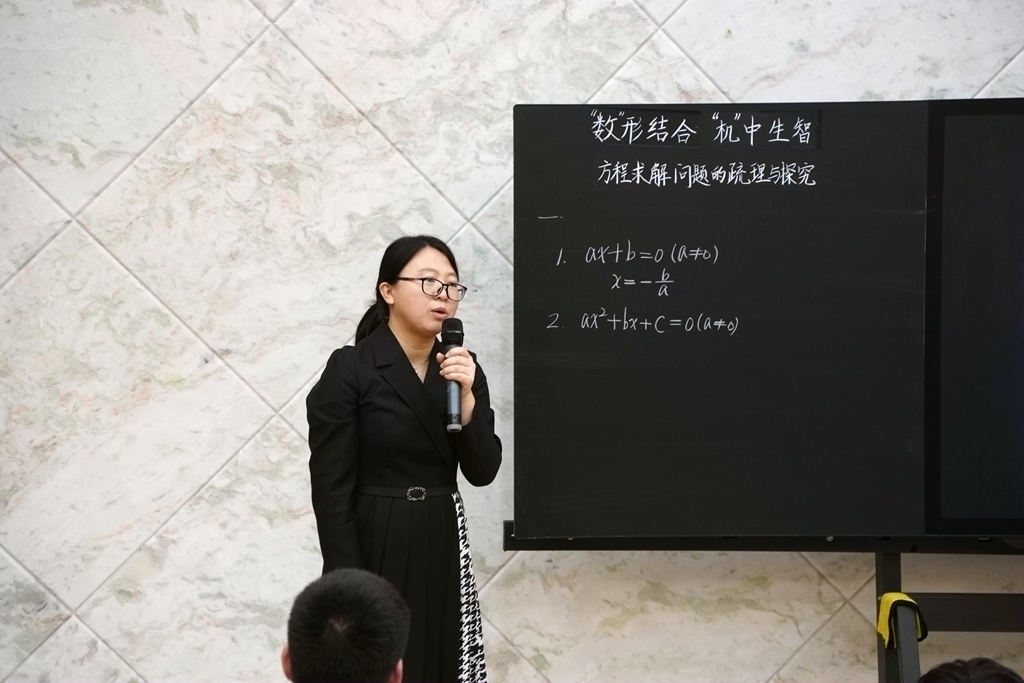 "数"形结合 "机"中生智
方程求解问题的疏理与探究
一.
1. ax+b=0 (a≠0)
x=-b/a
2. ax²+bx+c=0(a≠0)